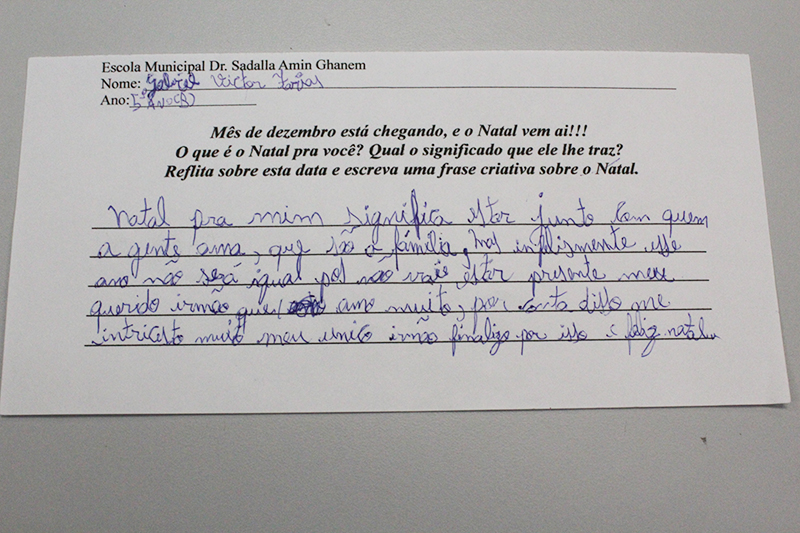 Escola Municipal Dr. Sadalla Amin Ghanem
Nome: Gabriel Victor Farias
Ano: 5º Ano (B)
Mês de dezembro está chegando, e o Natal vem ai!!!
O que é o Natal pra você? Qual o significado que ele lhe traz?
Reflita sobre esta data e escreva uma frase criativa sobre o Natal.
Natal pra mim significa estar junto com quem
a gente ama, que são a família, mas inflismente esse
ano não será igual pos não vai estar presente meu
querido irmão que amo muito, por conta disso me
intristo muito meu unico irmão finalizo por isso e feliz natal